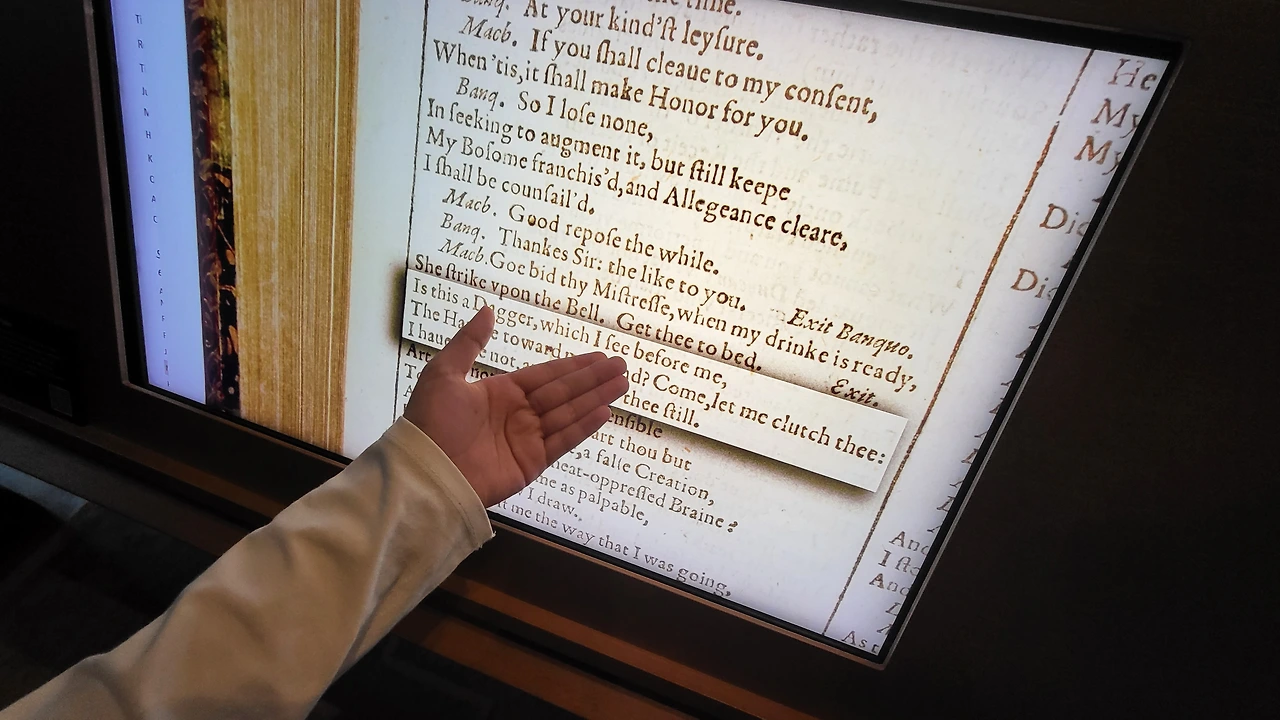 me time.
Banq. At your kind'ſt leyſure.
Macb. If you ſhall cleaue to my conſent,
When 'tis, it ſhall make Honor for you.
Banq. So I loſe none,
In ſeeking to augment it, but ſtill keepe
My Boſome franchis'd, and Allegeance cleare,
I ſhall be counſail'd.
Macb. Good repoſe the while.
Banq. Thankes Sir: the like to you.
Exit Banquo.
Macb. Goe bid thy Miſtreſſe, when my drinke is ready,
She ſtrike vpon the Bell. Get thee to bed.
Exit.
Is this a Dagger, which I ſee before me,
The toward Come, let me clutch thee:
I haue not, thee ſtill.
Art
art thou but
a falſe Creation,
heat-oppreſſed Braine?
me as palpable,
I draw.
me the way that I was going,
He
My
My
Di
Di
And
I ſto
And
As t